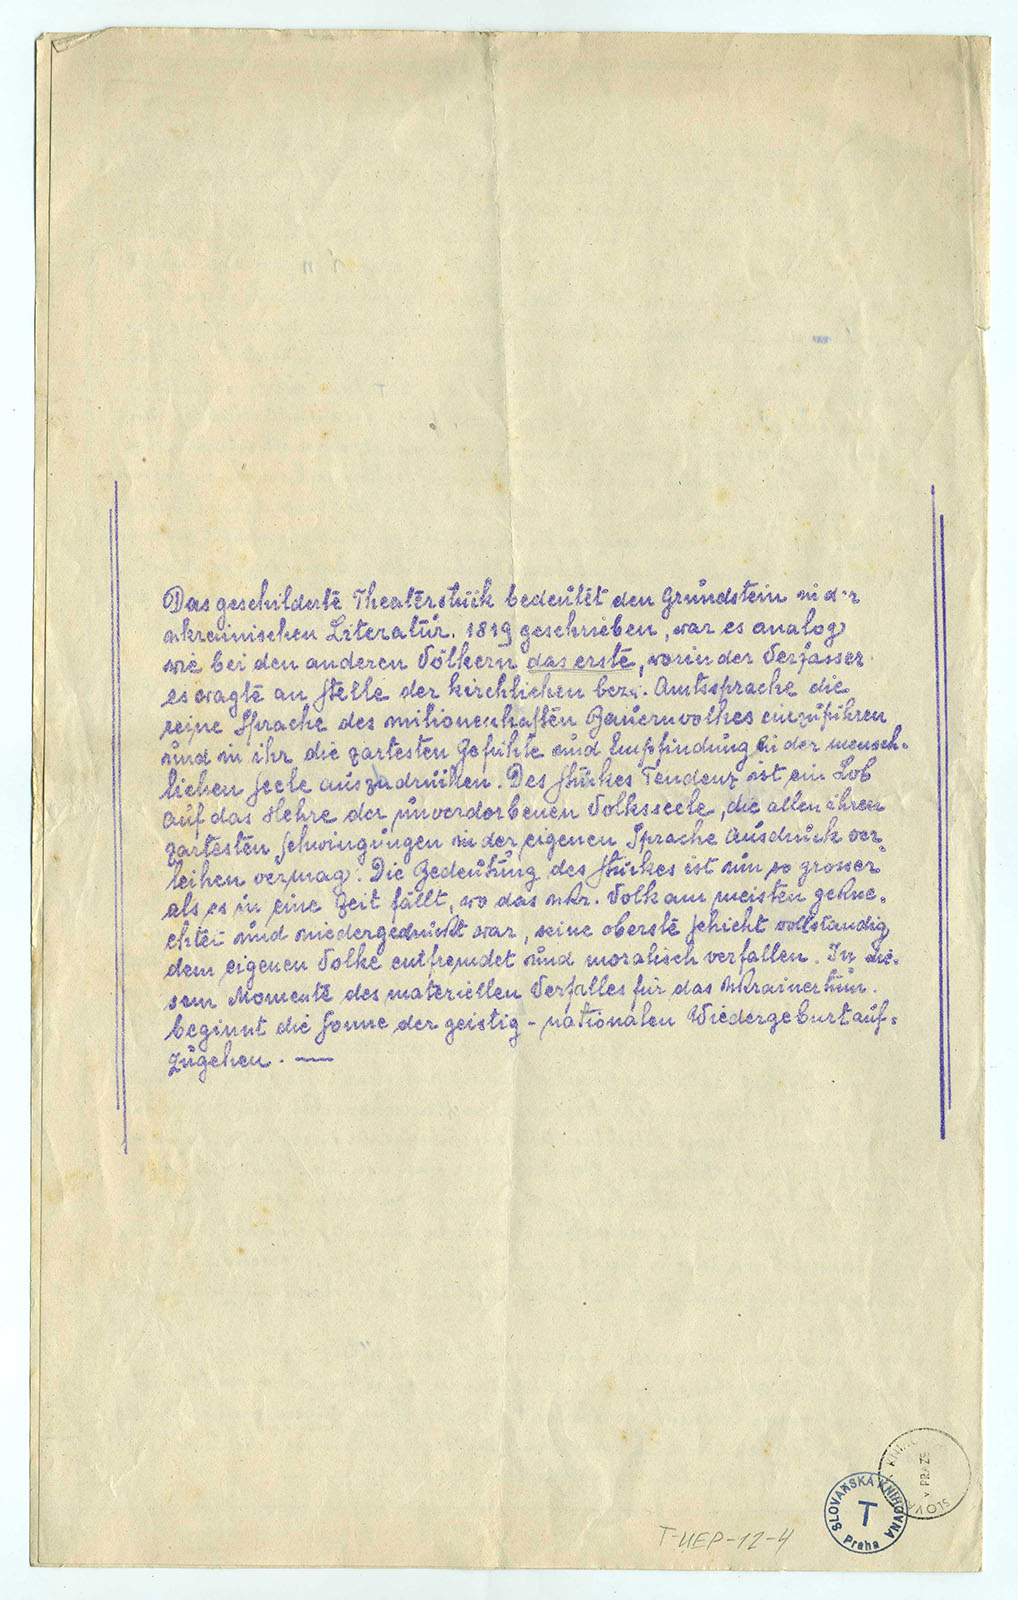 Das geschilderte Theaterstück bedeutet den Grundstein in der
ukrainischen Literatur. 1819 geschrieben, war es analog
wie bei den anderen Völkern das erste, worin der Verfasser
es wagte an Stelle der kirchlichen bezw. Amtssprache die
reine Sprache des milionenhaften Bauernvolkes einzuführen
und in ihr die zartesten Gefühle und Empfindung in der mensch-
lichen Seele auszudrücken. Des Stückes Tendenz ist ein Lob
auf das Hehre der unverdorbenen Volksseele, die allen ihren
zartesten Schwingungen in der eigenen Sprache Ausdruck ver-
leihen vermag. Die Bedeutung des Stückes ist um so grosser
als es in eine Zeit fällt, wo das ukr. Volk am meisten gekne-
chtet und niedergedrückt war, seine oberste Schicht vollständig
dem eigenen Volke entfremdet und moralisch verfallen. In die-
sem Momente des materiellen Verfalles für das Ukrainertum
beginnt die Sonne der geistig-nationalen Wiedergeburt auf-
zugehen. —
SLOVANSKÁ KNIHOVNA
T
Praha
V PRAZE
T-UEP-12-4